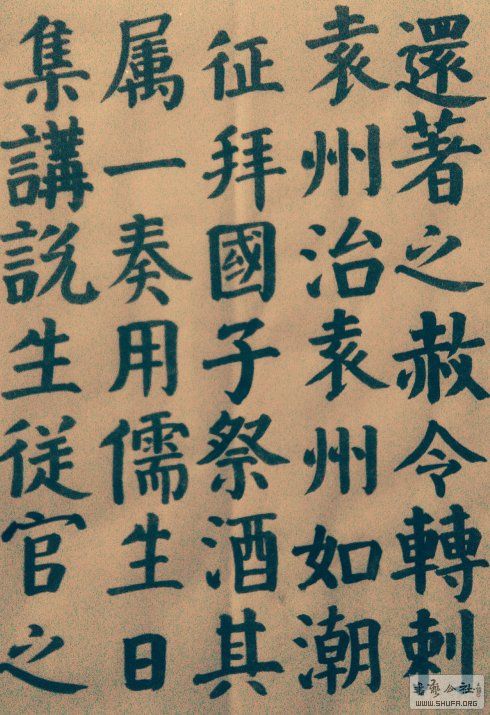 還著之赦令轉刺
袁州治袁州如潮
征拜國子祭酒其
属一奏用儒生日
集講説生従官之
書法公社
WWW.SHUFA.ORG